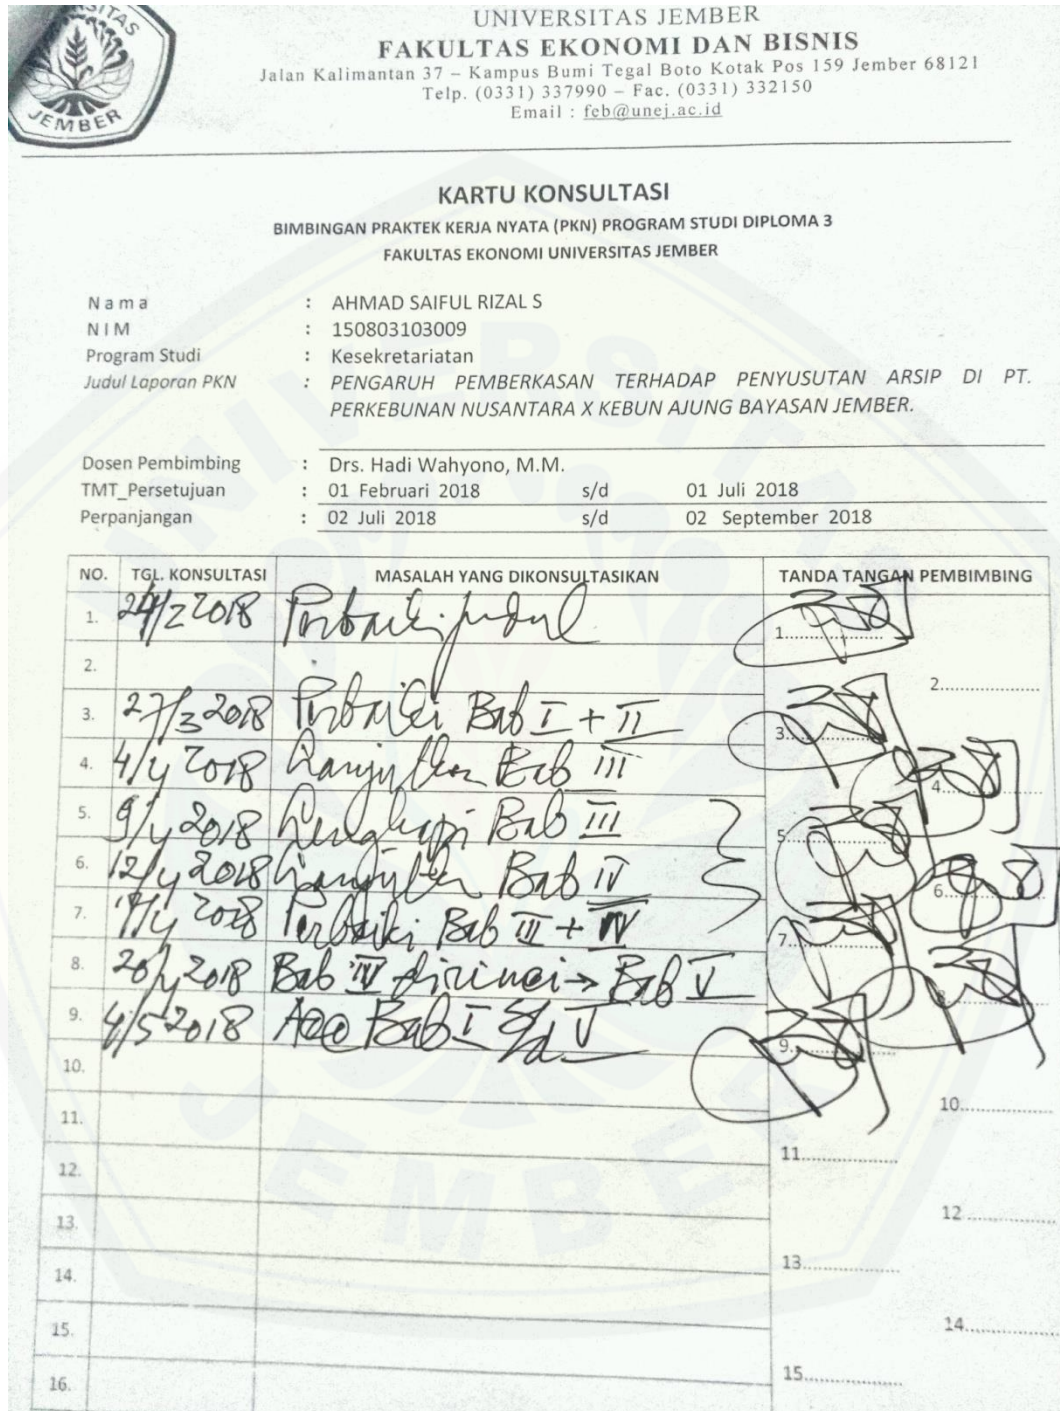 UNIVERSITAS JEMBER
FAKULTAS EKONOMI DAN BISNIS
Jalan Kalimantan 37 – Kampus Bumi Tegal Boto Kotak Pos 159 Jember 68121
Telp. (0331) 337990 – Fac. (0331) 332150
Email : feb@unej.ac.id
JEMBER
KARTU KONSULTASI
BIMBINGAN PRAKTEK KERJA NYATA (PKN) PROGRAM STUDI DIPLOMA 3
FAKULTAS EKONOMI UNIVERSITAS JEMBER
N a m a : AHMAD SAIFUL RIZAL S
N I M : 150803103009
Program Studi : Kesekretariatan
Judul Laporan PKN : PENGARUH PEMBERKASAN TERHADAP PENYUSUTAN ARSIP DI PT.
PERKEBUNAN NUSANTARA X KEBUN AJUNG BAYASAN JEMBER.
Dosen Pembimbing : Drs. Hadi Wahyono, M.M.
TMT_Persetujuan : 01 Februari 2018 s/d 01 Juli 2018
Perpanjangan : 02 Juli 2018 s/d 02 September 2018
NO. TGL. KONSULTASI MASALAH YANG DIKONSULTASIKAN TANDA TANGAN PEMBIMBING
1. 24/2 2018 Perbaiki judul 1...............
2. 2...............
3. 27/3 2018 Perbaiki Bab I + II 3...............
4. 4/4 2018 Lanjutkan Bab III 4...............
5. 9/4 2018 Lengkapi Bab III 5...............
6. 12/4 2018 Lanjutkan Bab IV 6...............
7. 2018 Perbaiki Bab III + IV 7...............
8. 20/4 2018 Bab IV dirinci → Bab V 8...............
9. 4/5 2018 Acc Bab I s/d V 9...............
10. 10...............
11. 11...............
12. 12...............
13. 13...............
14. 14...............
15. 15...............
16.